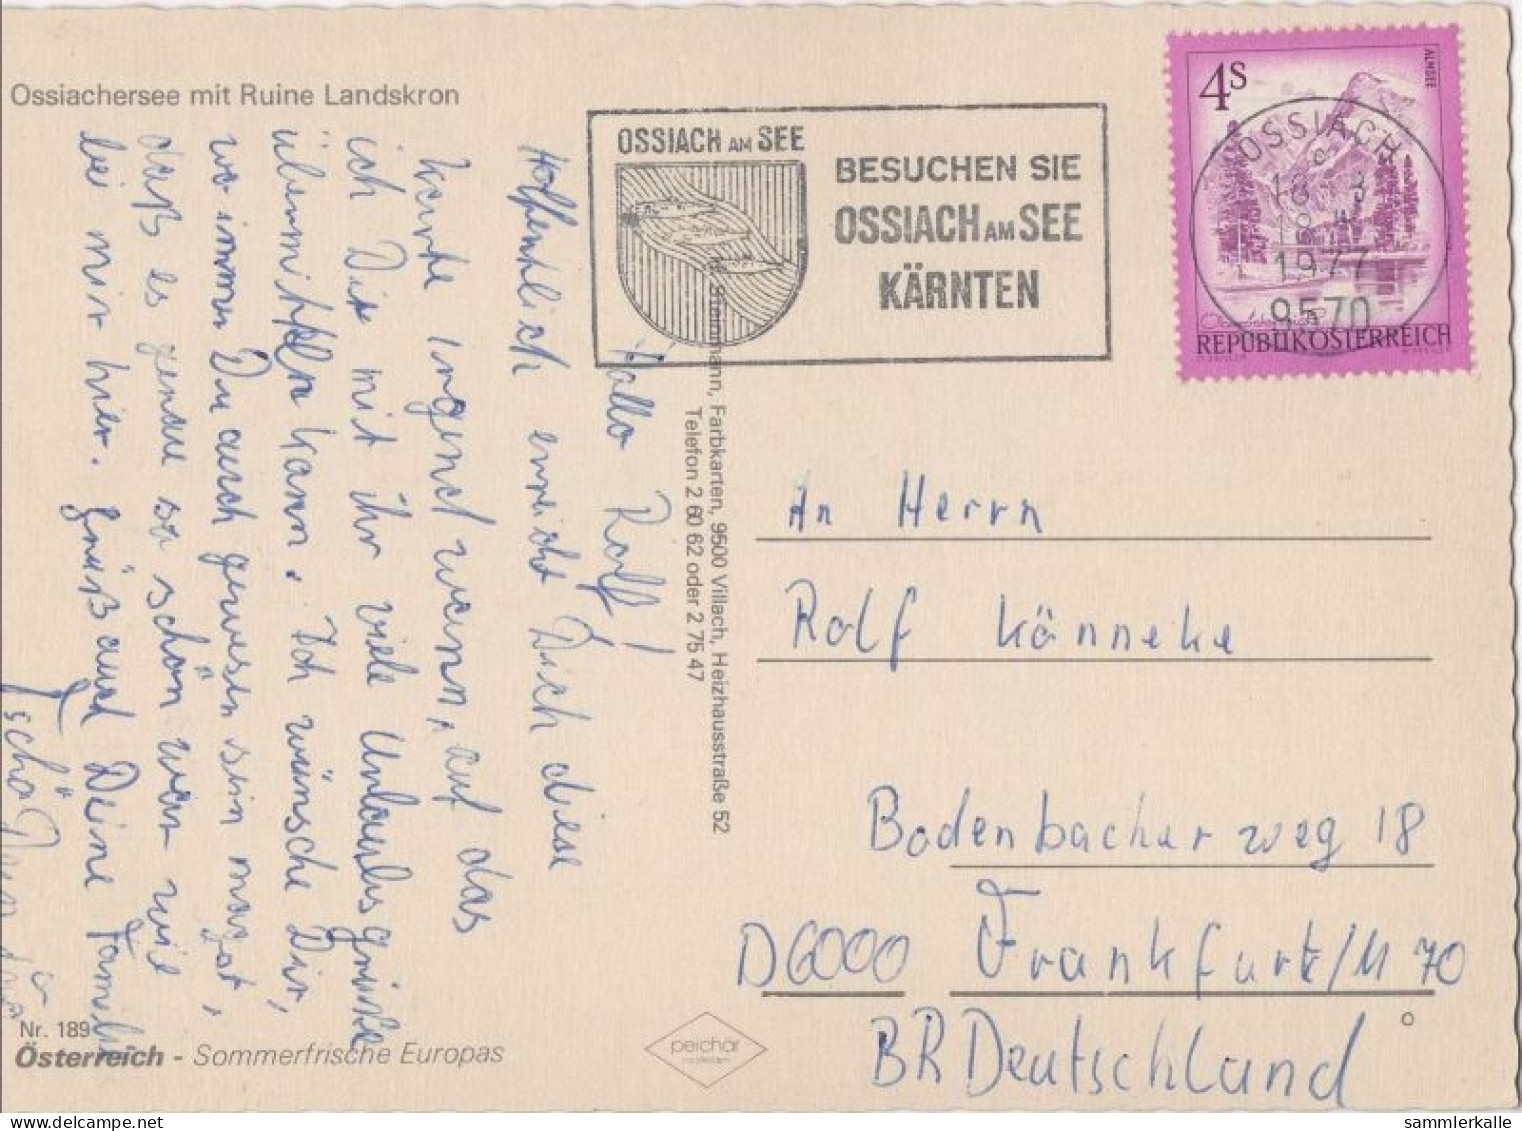 Ossiachersee mit Ruine Landskron
OSSIACH AM SEE
BESUCHEN SIE
OSSIACH AM SEE
KÄRNTEN
4S
ALMSEE
OSSIACH
1977
9570
REPUBLIK ÖSTERREICH
Hallo Rolf!
Hoffentlich erreicht Dich diese
Karte irgend wann, auf das
ich Dir mit ihr viele Urlaubsgrüße
übermitteln kann. Ich wünsche Dir,
wo immer Du auch gewesen sein magst,
daß es genau so schön war wie
bei mir hier. Grüß auch Deine Familie
Farbkarten, 9500 Villach, Heizhausstraße 52
Telefon 2 60 62 oder 2 75 47
An Herrn
Rolf Könneke
Bodenbacher weg 18
D6000 Frankfurt/M 70
BR Deutschland
Nr. 189
Österreich - Sommerfrische Europas
peichar
sammlerkalle